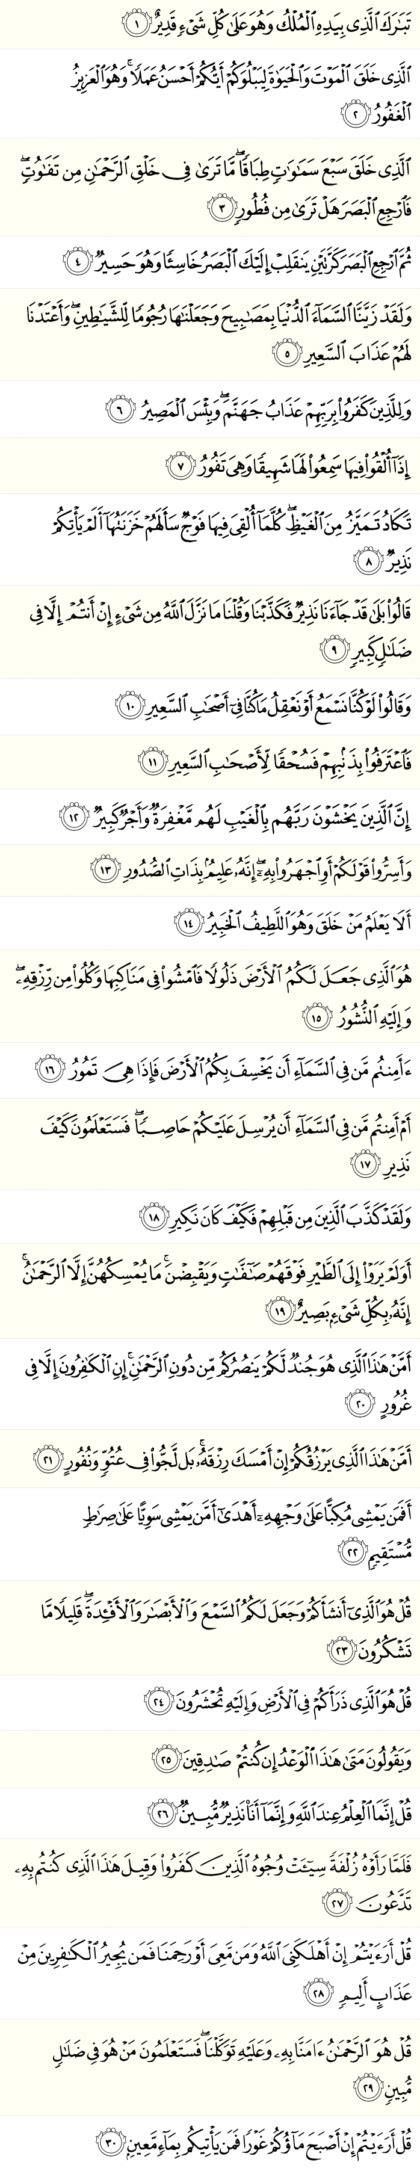 تَبَٰرَكَ ٱلَّذِى بِيَدِهِ ٱلْمُلْكُ وَهُوَ عَلَىٰ كُلِّ شَىْءٍ قَدِيرٌ ١
ٱلَّذِى خَلَقَ ٱلْمَوْتَ وَٱلْحَيَوٰةَ لِيَبْلُوَكُمْ أَيُّكُمْ أَحْسَنُ عَمَلًا ۚ وَهُوَ ٱلْعَزِيزُ
ٱلْغَفُورُ ٢
ٱلَّذِى خَلَقَ سَبْعَ سَمَٰوَٰتٍ طِبَاقًا ۖ مَّا تَرَىٰ فِى خَلْقِ ٱلرَّحْمَٰنِ مِن تَفَٰوُتٍ ۖ
فَٱرْجِعِ ٱلْبَصَرَ هَلْ تَرَىٰ مِن فُطُورٍ ٣
ثُمَّ ٱرْجِعِ ٱلْبَصَرَ كَرَّتَيْنِ يَنقَلِبْ إِلَيْكَ ٱلْبَصَرُ خَاسِئًا وَهُوَ حَسِيرٌ ٤
وَلَقَدْ زَيَّنَّا ٱلسَّمَآءَ ٱلدُّنْيَا بِمَصَٰبِيحَ وَجَعَلْنَٰهَا رُجُومًا لِّلشَّيَٰطِينِ ۖ وَأَعْتَدْنَا
لَهُمْ عَذَابَ ٱلسَّعِيرِ ٥
وَلِلَّذِينَ كَفَرُوا۟ بِرَبِّهِمْ عَذَابُ جَهَنَّمَ ۖ وَبِئْسَ ٱلْمَصِيرُ ٦
إِذَآ أُلْقُوا۟ فِيهَا سَمِعُوا۟ لَهَا شَهِيقًا وَهِىَ تَفُورُ ٧
تَكَادُ تَمَيَّزُ مِنَ ٱلْغَيْظِ ۖ كُلَّمَآ أُلْقِىَ فِيهَا فَوْجٌ سَأَلَهُمْ خَزَنَتُهَآ أَلَمْ يَأْتِكُمْ
نَذِيرٌ ٨
قَالُوا۟ بَلَىٰ قَدْ جَآءَنَا نَذِيرٌ فَكَذَّبْنَا وَقُلْنَا مَا نَزَّلَ ٱللَّهُ مِن شَىْءٍ إِنْ أَنتُمْ إِلَّا فِى
ضَلَٰلٍ كَبِيرٍ ٩
وَقَالُوا۟ لَوْ كُنَّا نَسْمَعُ أَوْ نَعْقِلُ مَا كُنَّا فِىٓ أَصْحَٰبِ ٱلسَّعِيرِ ١٠
فَٱعْتَرَفُوا۟ بِذَنۢبِهِمْ فَسُحْقًا لِّأَصْحَٰبِ ٱلسَّعِيرِ ١١
إِنَّ ٱلَّذِينَ يَخْشَوْنَ رَبَّهُم بِٱلْغَيْبِ لَهُم مَّغْفِرَةٌ وَأَجْرٌ كَبِيرٌ ١٢
وَأَسِرُّوا۟ قَوْلَكُمْ أَوِ ٱجْهَرُوا۟ بِهِۦٓ ۖ إِنَّهُۥ عَلِيمٌۢ بِذَاتِ ٱلصُّدُورِ ١٣
أَلَا يَعْلَمُ مَنْ خَلَقَ وَهُوَ ٱللَّطِيفُ ٱلْخَبِيرُ ١٤
هُوَ ٱلَّذِى جَعَلَ لَكُمُ ٱلْأَرْضَ ذَلُولًا فَٱمْشُوا۟ فِى مَنَاكِبِهَا وَكُلُوا۟ مِن رِّزْقِهِۦ ۖ
وَإِلَيْهِ ٱلنُّشُورُ ١٥
ءَأَمِنتُم مَّن فِى ٱلسَّمَآءِ أَن يَخْسِفَ بِكُمُ ٱلْأَرْضَ فَإِذَا هِىَ تَمُورُ ١٦
أَمْ أَمِنتُم مَّن فِى ٱلسَّمَآءِ أَن يُرْسِلَ عَلَيْكُمْ حَاصِبًا ۖ فَسَتَعْلَمُونَ كَيْفَ
نَذِيرِ ١٧
وَلَقَدْ كَذَّبَ ٱلَّذِينَ مِن قَبْلِهِمْ فَكَيْفَ كَانَ نَكِيرِ ١٨
أَوَلَمْ يَرَوْا۟ إِلَى ٱلطَّيْرِ فَوْقَهُمْ صَٰٓفَّٰتٍ وَيَقْبِضْنَ ۚ مَا يُمْسِكُهُنَّ إِلَّا ٱلرَّحْمَٰنُ ۚ
إِنَّهُۥ بِكُلِّ شَىْءٍۭ بَصِيرٌ ١٩
أَمَّنْ هَٰذَا ٱلَّذِى هُوَ جُندٌ لَّكُمْ يَنصُرُكُم مِّن دُونِ ٱلرَّحْمَٰنِ ۚ إِنِ ٱلْكَٰفِرُونَ إِلَّا فِى
غُرُورٍ ٢٠
أَمَّنْ هَٰذَا ٱلَّذِى يَرْزُقُكُمْ إِنْ أَمْسَكَ رِزْقَهُۥ ۚ بَل لَّجُّوا۟ فِى عُتُوٍّ وَنُفُورٍ ٢١
أَفَمَن يَمْشِى مُكِبًّا عَلَىٰ وَجْهِهِۦٓ أَهْدَىٰٓ أَمَّن يَمْشِى سَوِيًّا عَلَىٰ صِرَٰطٍ
مُّسْتَقِيمٍ ٢٢
قُلْ هُوَ ٱلَّذِىٓ أَنشَأَكُمْ وَجَعَلَ لَكُمُ ٱلسَّمْعَ وَٱلْأَبْصَٰرَ وَٱلْأَفْـِٔدَةَ ۖ قَلِيلًا مَّا
تَشْكُرُونَ ٢٣
قُلْ هُوَ ٱلَّذِى ذَرَأَكُمْ فِى ٱلْأَرْضِ وَإِلَيْهِ تُحْشَرُونَ ٢٤
وَيَقُولُونَ مَتَىٰ هَٰذَا ٱلْوَعْدُ إِن كُنتُمْ صَٰدِقِينَ ٢٥
قُلْ إِنَّمَا ٱلْعِلْمُ عِندَ ٱللَّهِ وَإِنَّمَآ أَنَا۠ نَذِيرٌ مُّبِينٌ ٢٦
فَلَمَّا رَأَوْهُ زُلْفَةً سِيٓـَٔتْ وُجُوهُ ٱلَّذِينَ كَفَرُوا۟ وَقِيلَ هَٰذَا ٱلَّذِى كُنتُم بِهِۦ
تَدَّعُونَ ٢٧
قُلْ أَرَءَيْتُمْ إِنْ أَهْلَكَنِىَ ٱللَّهُ وَمَن مَّعِىَ أَوْ رَحِمَنَا فَمَن يُجِيرُ ٱلْكَٰفِرِينَ مِنْ
عَذَابٍ أَلِيمٍ ٢٨
قُلْ هُوَ ٱلرَّحْمَٰنُ ءَامَنَّا بِهِۦ وَعَلَيْهِ تَوَكَّلْنَا ۖ فَسَتَعْلَمُونَ مَنْ هُوَ فِى ضَلَٰلٍ
مُّبِينٍ ٢٩
قُلْ أَرَءَيْتُمْ إِنْ أَصْبَحَ مَآؤُكُمْ غَوْرًا فَمَن يَأْتِيكُم بِمَآءٍ مَّعِينٍۭ ٣٠